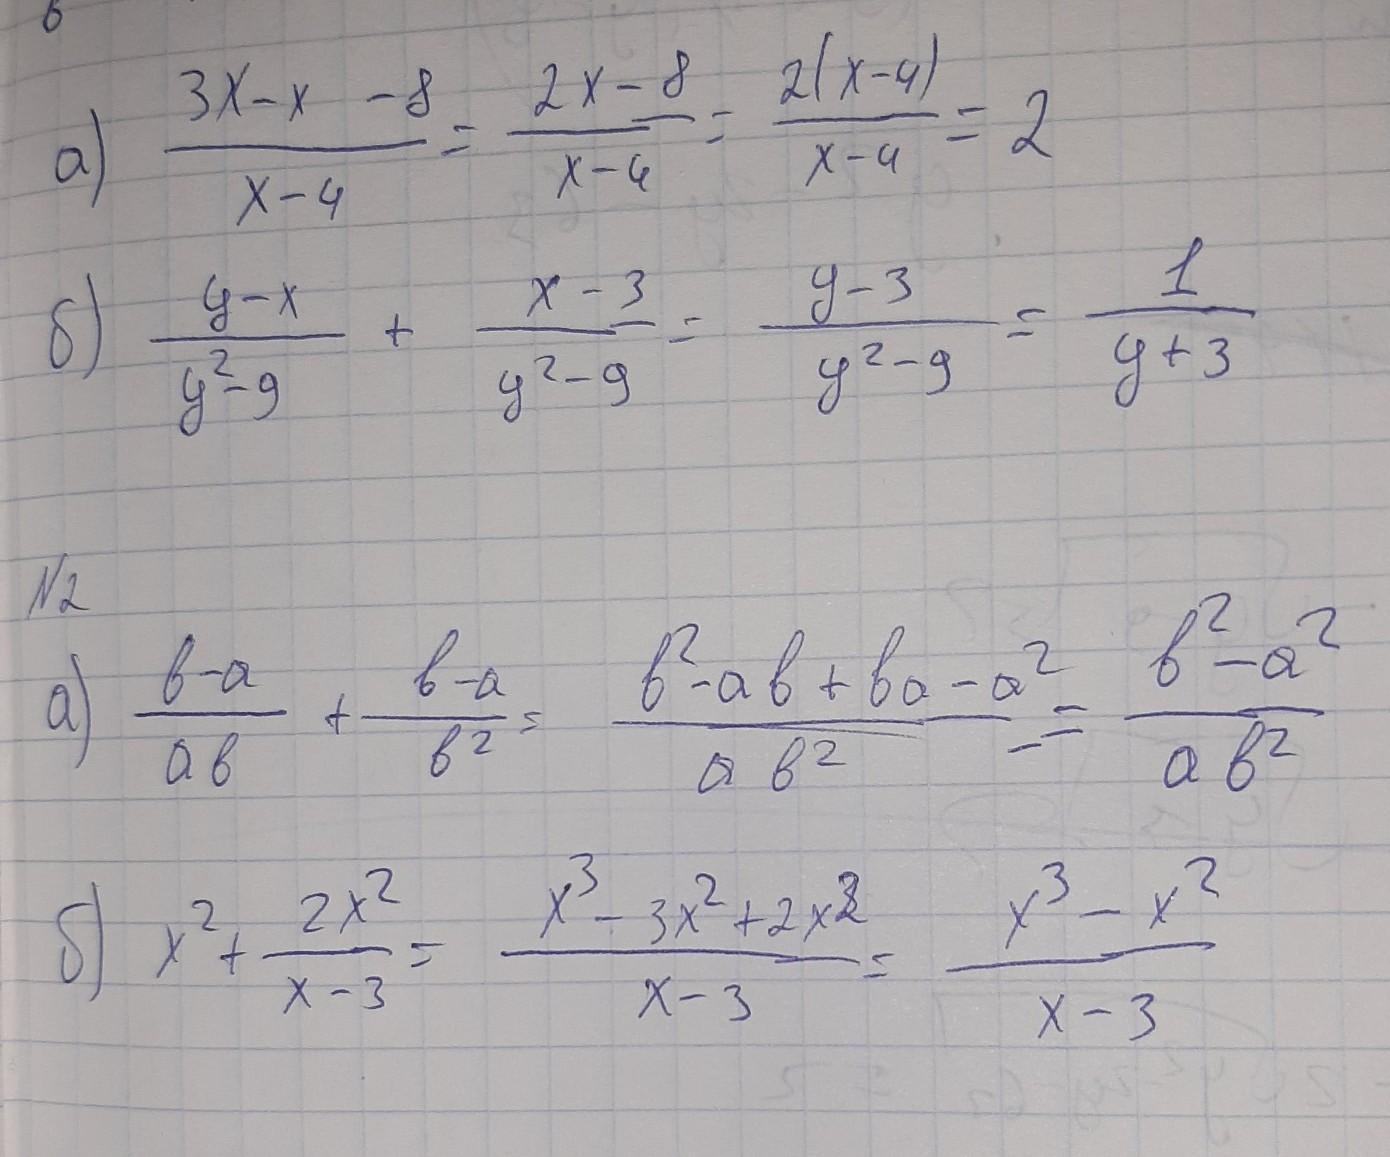 а) (3x-x -8)/(x-4) = (2x-8)/(x-4) = 2(x-4)/(x-4) = 2
б) (y-x)/(y²-9) + (x-3)/(y²-9) = (y-3)/(y²-9) = 1/(y+3)
№2
а) (в-а)/(ав) + (в-а)/(в²) = (в²-ав+ва-а²)/(ав²) = (в²-а²)/(ав²)
б) x² + 2x²/(x-3) = (x³-3x²+2x²)/(x-3) = (x³-x²)/(x-3)